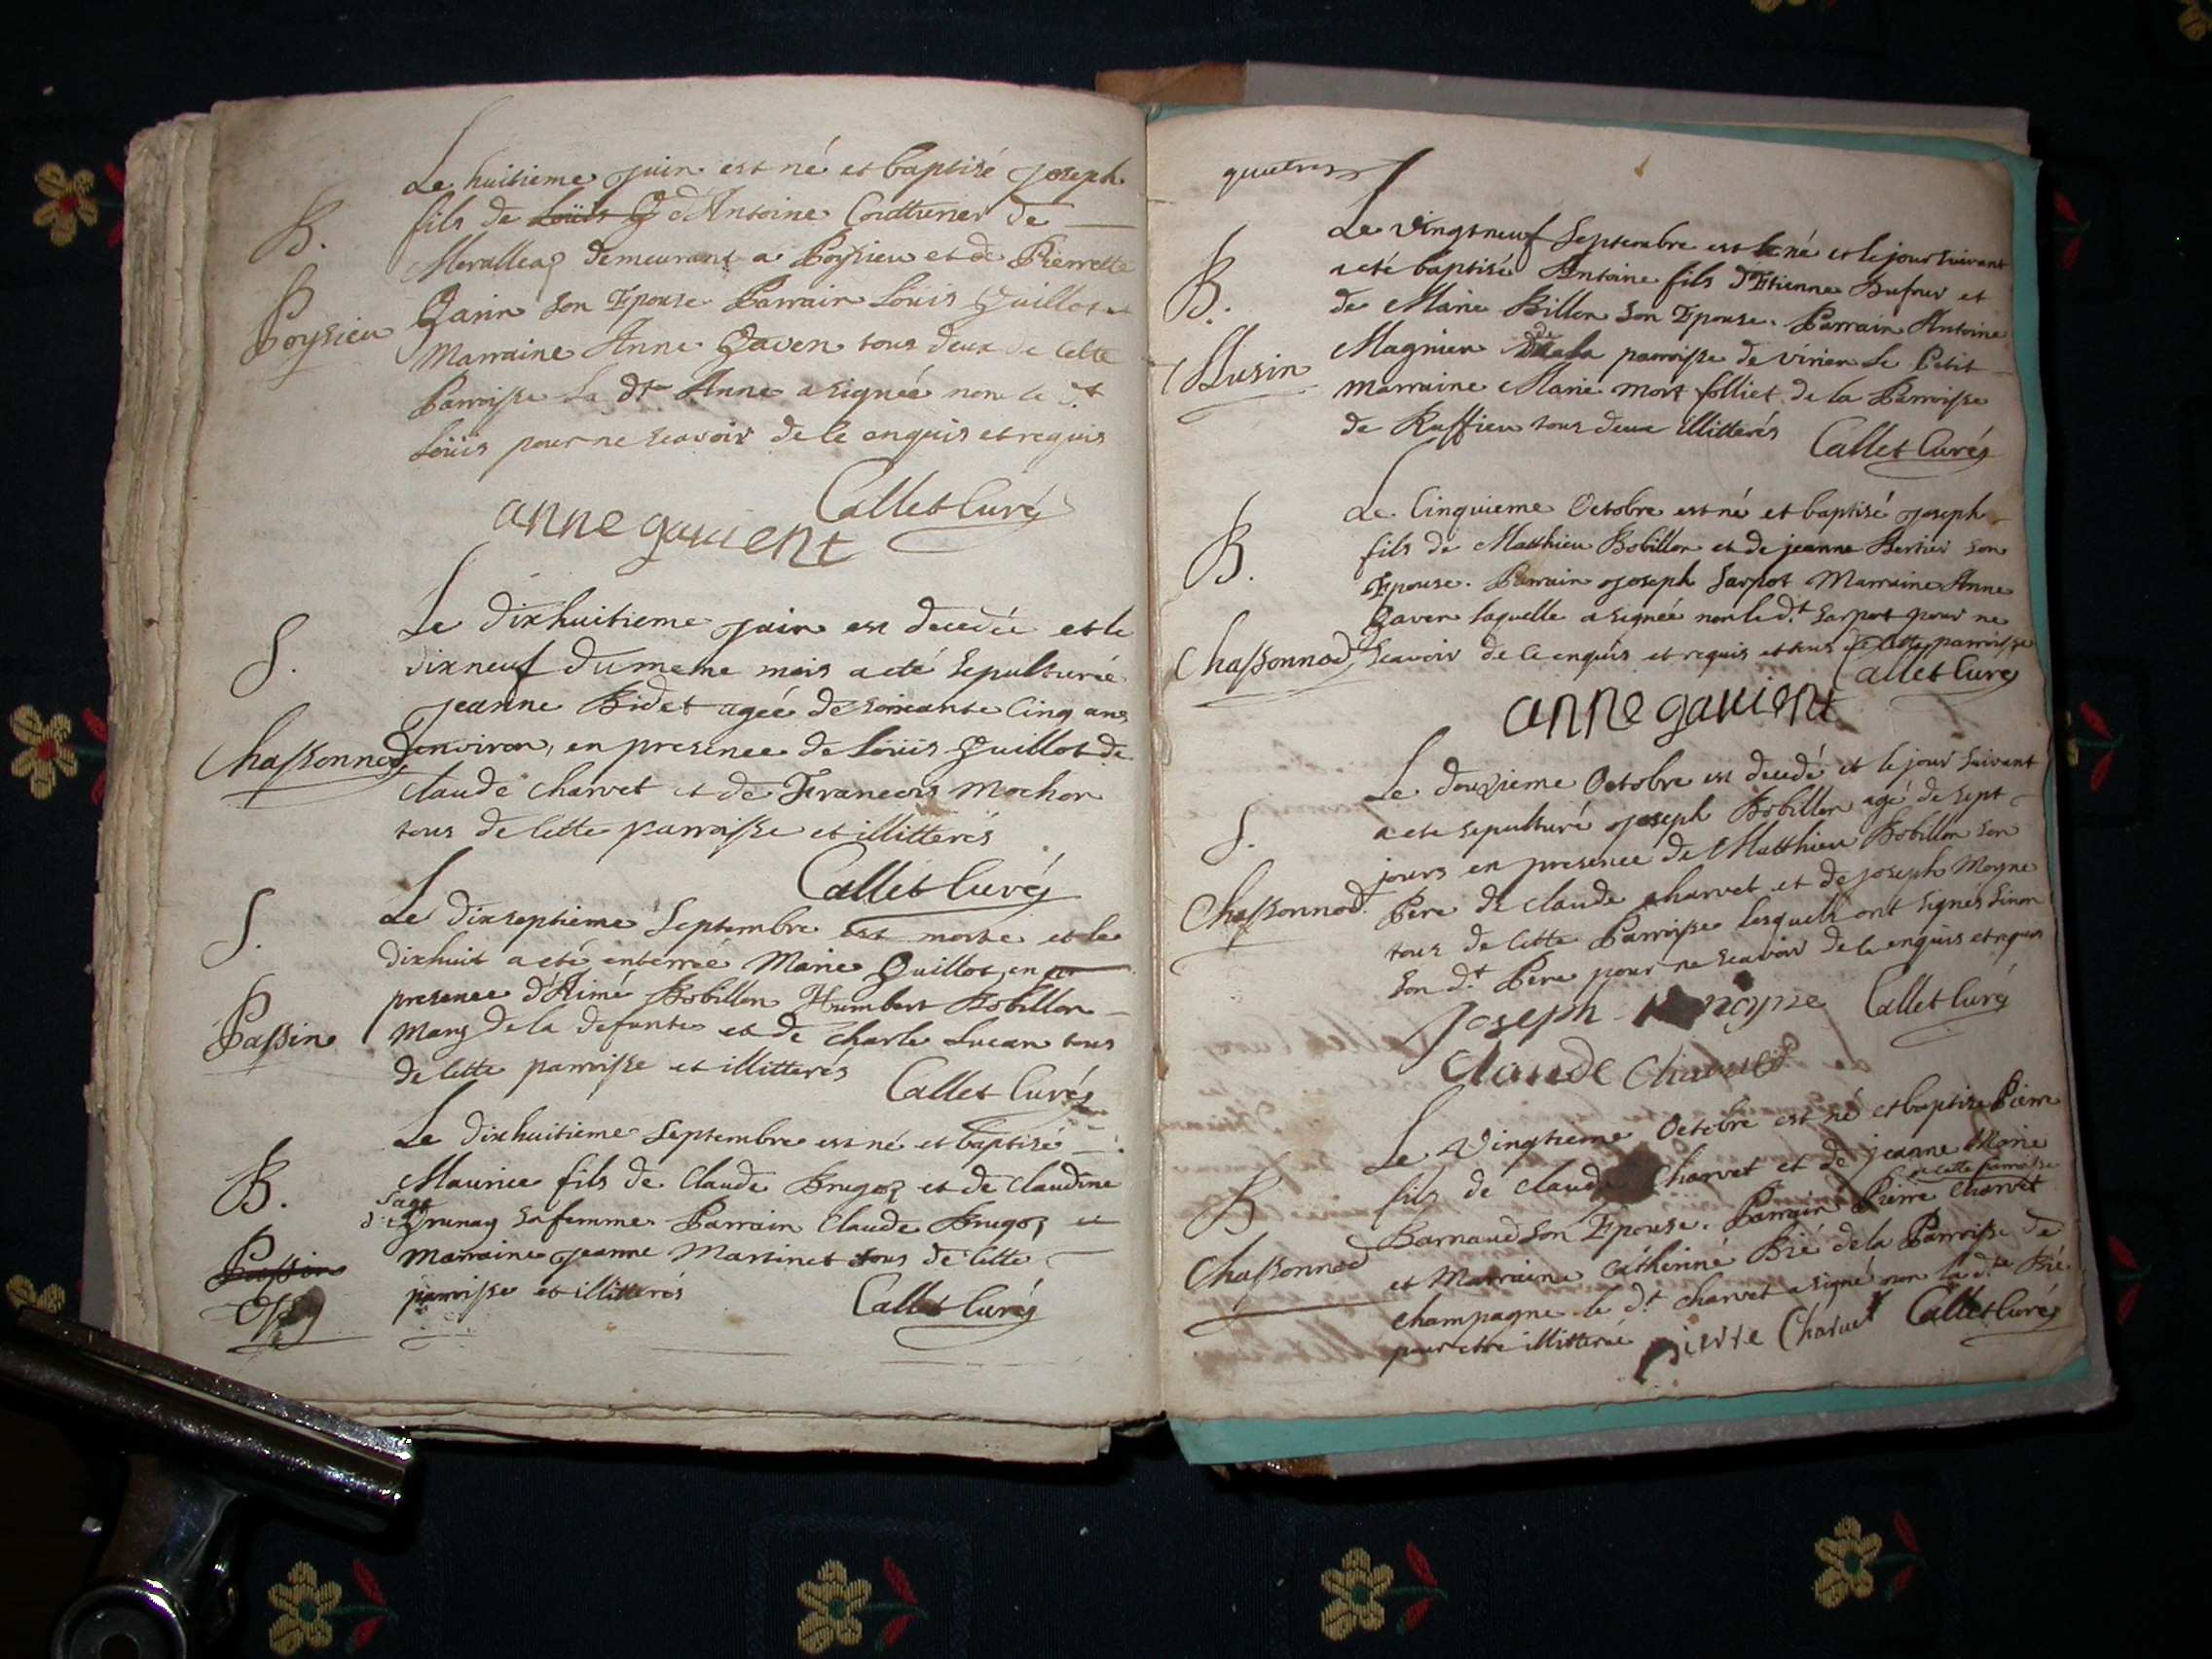 Le huitieme juin est né et baptisé joseph
B.
fils de Loüis G d'Antoine Coutturier de
demeurant a Poysieu et de Pierrette
Poysieu
Garin son Epouse Parrain Loüis Guillot et
Marraine Anne Gaven tous deux de cette
Parroisse La dte Anne a signée non le dt
Loüis pour ne scavoir de ce enquis et requis
Callet Curé
anne gavient
Le dixhuitieme juin est decedée et le
S.
dixneuf du meme mois a eté sepulturée
jeanne Bidet agée de soixante cinq ans
Chassonnod
environ, en presence de Loüis Guillot de
Claude Charvet et de Francois Mochon
tous de cette parroisse et illitterés
Callet Curé
Le dixseptieme Septembre est morte et le
S.
dixhuit a eté enterrée Marie Guillot, en
presence d'Aimé Bobillon Humbert Bobillon
Passin
Mary de la defunte et de Charle Lucan tous
de cette parroisse et illitterés
Callet Curé
Le dixhuitieme Septembre est né et baptisé
B.
Maurice fils de Claude Brugoz et de Claudine
Sage
d: Brunay sa femme. Parrain Claude Brugoz et
Passin
marraine jeanne Martinet tous de cette
parroisse et illitterés
Callet Curé
quatres
Le vingtneuf Septembre est né et le jour suivant
B.
a eté baptisé Antoine fils d'Etienne Dufour et
de Marie Billon son Epouse. Parrain Antoine
Musin
Magnien de la parroisse de Virieu le Petit
marraine Marie mort folliet de la Parroisse
de Ruffieu tous deux illitterés
Callet Curé
Le Cinquieme Octobre est né et baptisé joseph
B.
fils de Matthieu Bobillon et de jeanne Bertier son
Epouse. Parrain joseph Sarpot Marraine Anne
Gaven laquelle a signée non le dt Sarpot pour ne
Chassonnod
scavoir de ce enquis et requis et tous de cette parroisse
Callet Curé
anne gavient
Le douzieme Octobre est decedé et le jour suivant
S.
a eté sepulturé joseph Bobillon agé de sept
jours en presence de Matthieu Bobillon son
Chassonnod.
Pere de Claude Charvet et de joseph Moyne
tous de cette Parroisse lesquels ont signés sinon
son dt Pere pour ne scavoir de ce enquis et requis
joseph moyne Callet Curé
Claude Charvet
Le Vingtieme Octobre est né et baptisé Pierre
B
fils de Claude Charvet et de jeanne Marie
de cette parroisse
Barnaud son Epouse. Parrain Pierre Charvet
Chassonnod
et Marraine Catherine Bié de la Parroisse de
Champagne le dt Charvet a signé non la dte Bié
pour etre illitterée pierre Charvet Callet Curé